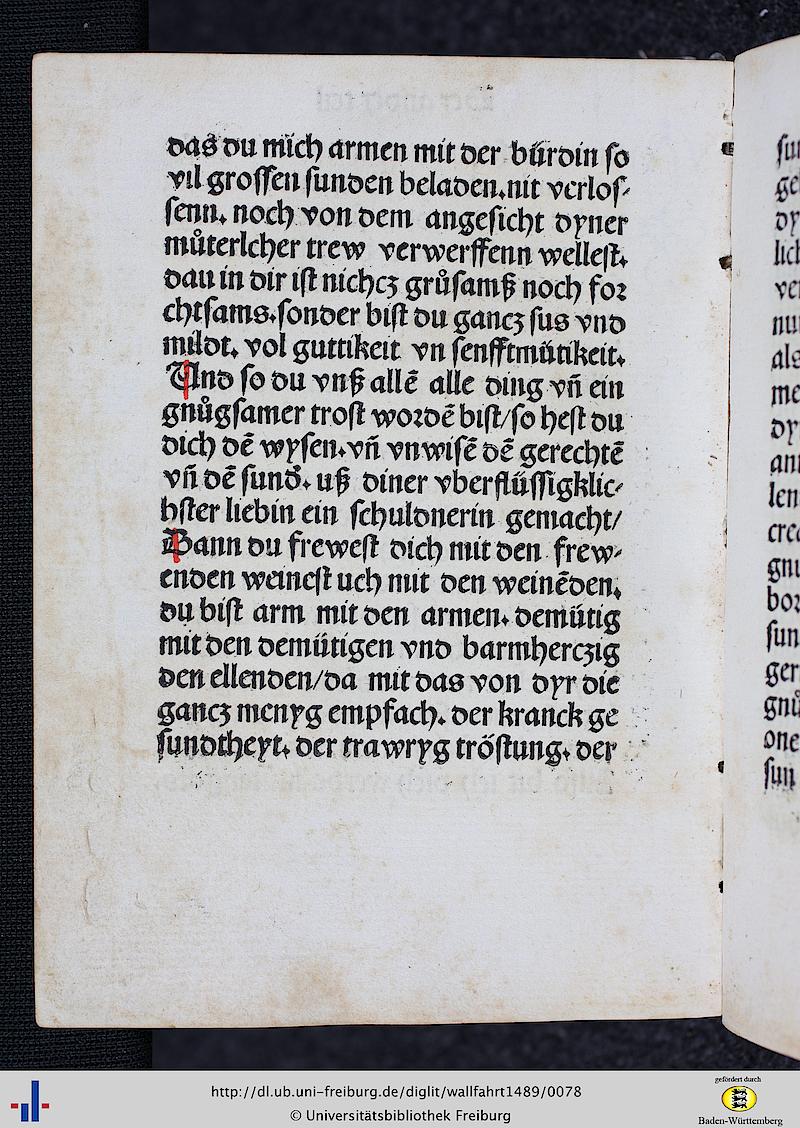 das du mich armen mit der bürdin so
vil grossen sunden beladen.nit verlos-
senn. noch von dem angesicht dyner
můterlcher trew verwerffenn wellest.
dau in dir ist nichcz grůsamß noch for
chtsams.sonder bist du gancz sus vnd
mildt. vol guttikeit vn senfftmütikeit.
Und so du vnß allē alle ding vn̄ ein
gnůgsamer trost wordē bist/so hest du
dich dē wysen.vn̄ vnwisē dē gerechtē
vn̄ dē sund̄. uß diner vberflüssigklic-
hster liebin ein schuldnerin gemacht/
Wann du frewest dich mit den frew-
enden weinest uch mit den weinēden.
du bist arm mit den armen. demütig
mit den demütigen vnd barmherczig
den ellenden/da mit das von dyr die
gancz menyg empfach. der kranck ge
sundtheyt. der trawryg tröstung. der
sun
ge
dy
lich
ver
nu
als
me
dy
an
len
cre
gnu
bor
sun
ger
gnů
one
sun
http://dl.ub.uni-freiburg.de/diglit/wallfahrt1489/0078
© Universitätsbibliothek Freiburg
gefördert durch
Baden-Württemberg